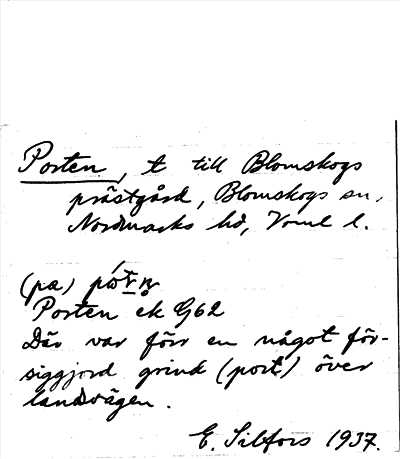 Porten, t till Blomskogs
prästgård, Blomskogs sn,
Nordmarks hd, Vrml l.
(pa)
Porten ek G62
Där var förr en något för-
siggjord grind (port) över
landvägen.
E. Silfors 1937.